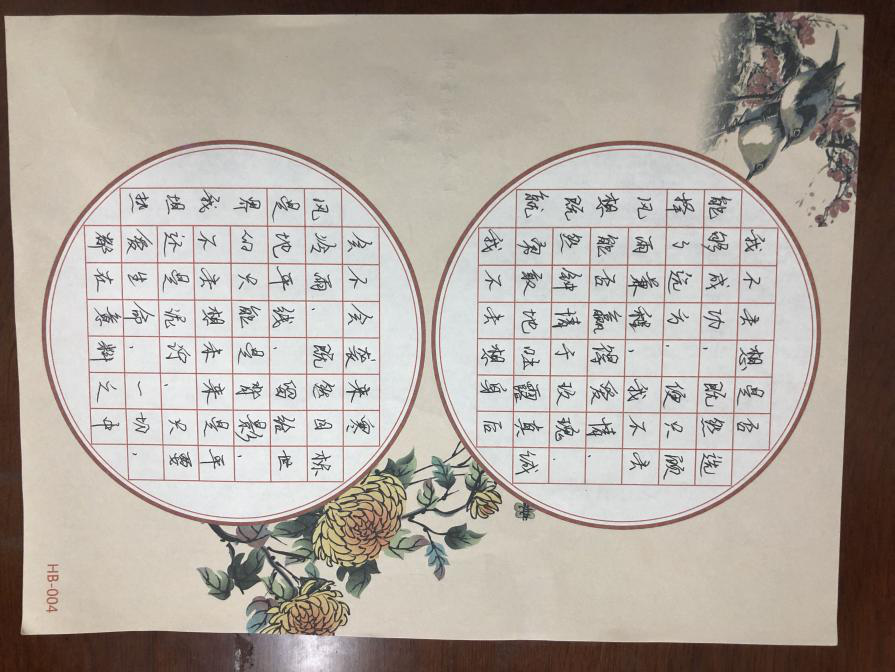 我不去想是否
能够成功，既然选
择了远方，便只顾
风雨兼程，我不去
想能否赢得爱情，
既然钟情于玫瑰，
就勇敢地吐露真诚
我不去想身后
会不会袭来寒
风冷雨，既然目标
是地平线，留给世
界的只能是背影，
我不去想未来是平
坦还是泥泞，只要
热爱生命，一切，
都在意料之中
HB-004